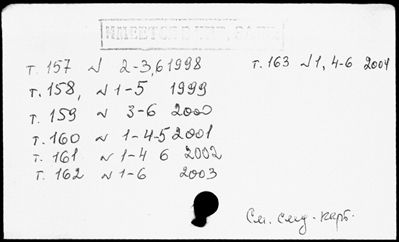 ИМЕЮТСЯ
т. 157 N 2-3,6 1998
т. 158, N 1-5 1999
т. 159 N 3-6 2000
т. 160 N 1-4-5 2001
т. 161 N 1-4 6 2002
т. 162 N 1-6 2003
т. 163 N 1, 4-6 2004
См. след. карт.